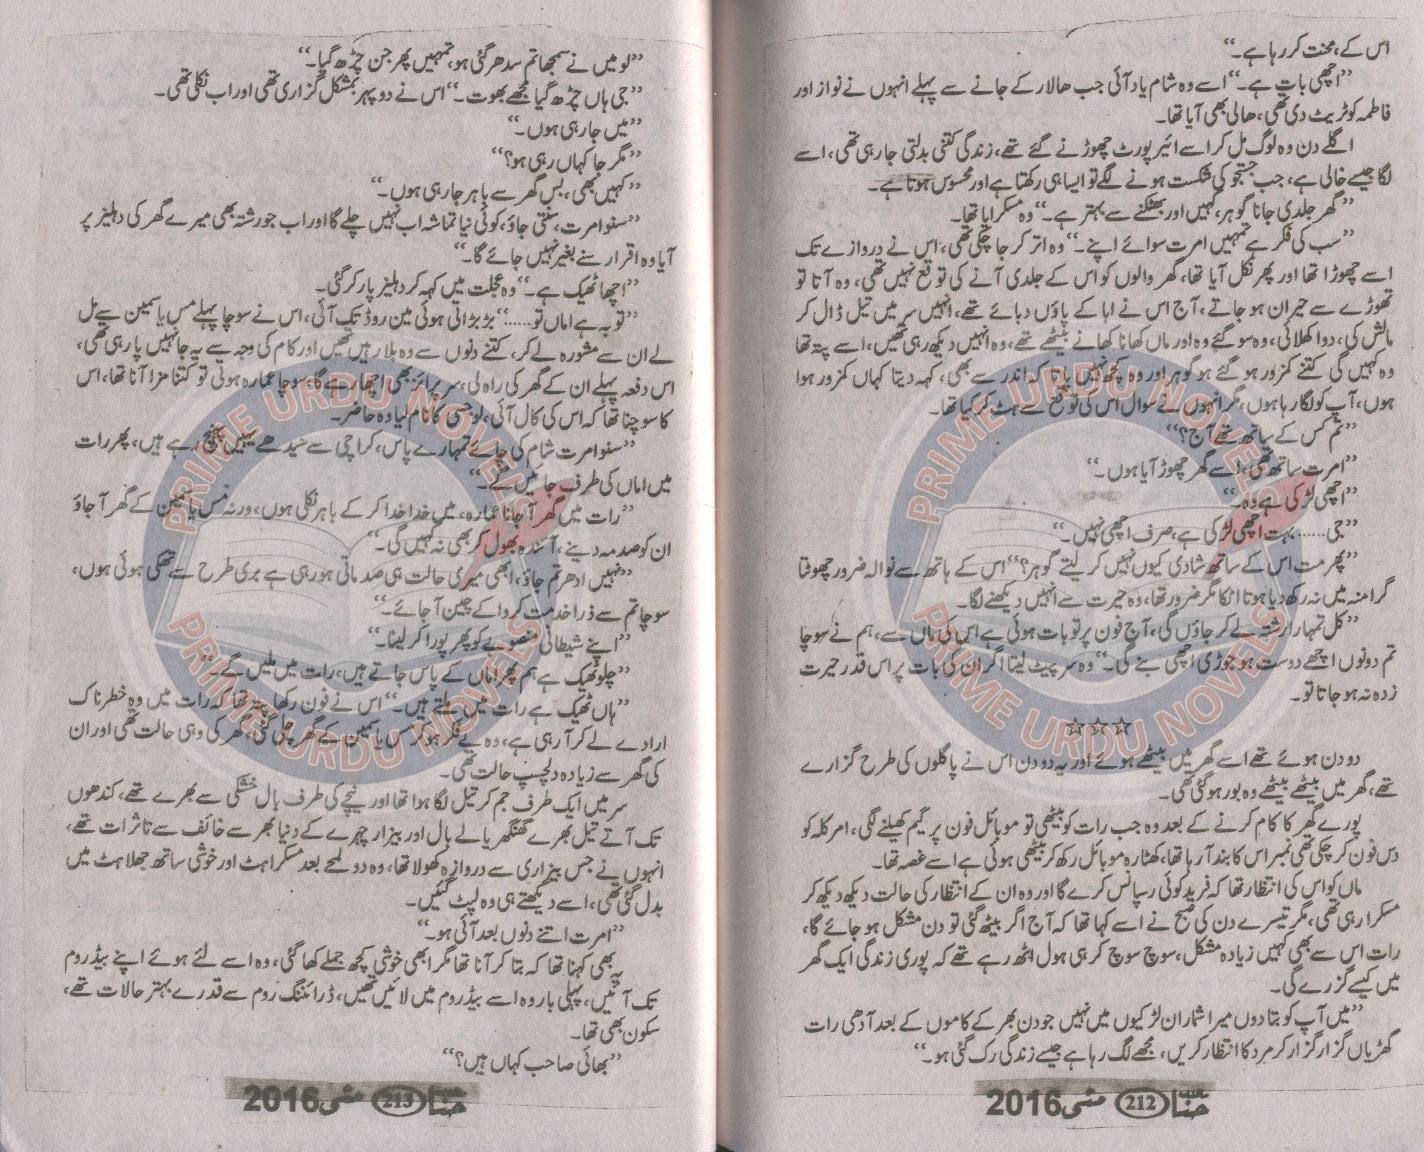 اس کے، محنت کر رہا ہے۔“
”اچھی بات ہے۔“ اسے وہ شام یاد آئی جب ھالار کے جانے سے پہلے انہوں نے نواز اور
فاطمہ کو ٹریٹ دی تھی، ھالی بھی آیا تھا۔
اگلے دن وہ لوگ مل کر اسے ائیر پورٹ چھوڑنے گئے تھے، زندگی کتنی بدلتی جا رہی تھی، اسے
لگا جیسے خالی ہے، جب جستجو کی شکست ہونے لگے تو ایسا ہی رکھتا ہے اور محسوس ہوتا ہے۔
”گھر جلدی جانا گوہر، کہیں اور بھٹکنے سے بہتر ہے۔“ وہ مسکرایا تھا۔
”سب کی فکر ہے تمہیں امرت سوائے اپنے۔“ وہ اتر کر جا چکی تھی، اس نے دروازے تک
اسے چھوڑا تھا اور پھر نکل آیا تھا، گھر والوں کو اس کے جلدی آنے کی توقع نہیں تھی، وہ آتا تو
تھوڑے سے حیران ہو جاتے، آج اس نے ابا کے پاؤں دبائے تھے، انہیں سر میں تیل ڈال کر
مالش کی، دوا کھلائی، وہ سو گئے وہ اور ماں کھانا کھانے بیٹھے تھے، وہ انہیں دیکھ رہی تھیں، اسے پتہ تھا
وہ کہیں گی کتنے کمزور ہو گئے ہو گوہر اور وہ کچھ نہیں پاتا کہ اندر سے بھی، کہہ دیتا کہاں کمزور ہوا
ہوں، آپ کو لگا رہا ہوں، مگر انہوں نے سوال اس کی توقع سے ہٹ کر کیا تھا۔
”تم کس کے ساتھ تھے آج؟“
”امرت ساتھ تھی، اسے گھر چھوڑ آیا ہوں۔“
”اچھی لڑکی ہے وہ۔“
”جی...... بہت اچھی لڑکی ہے، صرف اچھی نہیں۔“
”پھر مت اس کے ساتھ شادی کیوں نہیں کر لیتے گوہر؟“ اس کے ہاتھ سے نوالہ ضرور چھوٹتا
گر امنہ میں نہ رکھ دیا ہوتا اٹکا مگر ضرور تھا، وہ حیرت سے انہیں دیکھنے لگا۔
”کل تمہارا رشتہ لے کر جاؤں گی، آج فون پر تو بات ہوئی ہے اس کی ماں سے، ہم نے سوچا
تم دونوں اچھے دوست ہو جوڑی اچھی بنے گی۔“ وہ سر پیٹ لیتا اگر ان کی بات پر اس قدر حیرت
زدہ نہ ہو جاتا تو۔
☆☆☆
دو دن ہوئے تھے اسے گھر میں بیٹھے ہوئے اور یہ دو دن اس نے پاگلوں کی طرح گزارے
تھے، گھر میں بیٹھے بیٹھے وہ بور ہو گئی تھی۔
پورے گھر کا کام کرنے کے بعد وہ جب رات کو بیٹھی تو موبائل فون پر گیم کھیلنے لگی، امر کلہ کو
دس فون کر چکی تھی نمبر اس کا بند آ رہا تھا، کھٹارہ موبائل رکھ کر بیٹھی ہوئی ہے اسے غصہ تھا۔
ماں کو اس کی انتظار تھا کہ فرید کوئی رسپانس کرے گا اور وہ ان کے انتظار کی حالت دیکھ دیکھ کر
مسکرا رہی تھی، مگر تیسرے دن کی صبح نے اسے کہا تھا کہ آج اگر بیٹھ گئی تو دن مشکل ہو جائے گا،
رات اس سے بھی کہیں زیادہ مشکل، سوچ سوچ کر ہی ہول اٹھ رہے تھے کہ پوری زندگی ایک گھر
میں کیسے گزرے گی۔
”میں آپ کو بتا دوں میرا شمار ان لڑکیوں میں نہیں جو دن بھر کے کاموں کے بعد آدھی رات
گھڑیاں گزار گزار کر مرد کا انتظار کریں، مجھے لگ رہا ہے جیسے زندگی رک گئی ہو۔“
حنا 212 مئی 2016
”لو میں نے سمجھا تم سدھر گئی ہو، تمہیں پھر جن چڑھ گیا۔“
”جی ہاں چڑھ گیا مجھے بھوت۔“ اس نے دو پہر بمشکل گزاری تھی اور اب نکلی تھی۔
”میں جا رہی ہوں۔“
”مگر جا کہاں رہی ہو؟“
”کہیں بھی، بس گھر سے باہر جا رہی ہوں۔“
”سنو امرت، سنتی جاؤ، کوئی نیا تماشہ اب نہیں چلے گا اور اب جو رشتہ بھی میرے گھر کی دہلیز پر
آیا وہ اقرار سنے بغیر نہیں جائے گا۔“
”اچھا ٹھیک ہے۔“ وہ عجلت میں کہہ کر دہلیز پار کر گئی۔
”توبہ ہے اماں تو......“ بڑبڑاتی ہوئی مین روڈ تک آئی، اس نے سوچا پہلے مس یاسمین سے مل
لے ان سے مشورہ لے کر، کتنے دنوں سے وہ بلا رہیں تھیں اور کام کی وجہ سے یہ جا نہیں پا رہی تھی،
اس دفعہ پہلے ان کے گھر کی راہ لی، سرپرائز بھی اچھا رہے گا، سوچا عمارہ ہوتی تو کتنا مزا آنا تھا، اس
کا سوچنا تھا کہ اس کی کال آئی، لو جی کا نام لیا وہ حاضر۔
”سنو امرت شام کی چائے تمہارے پاس، کراچی سے سیدھے یہیں پہنچ رہے ہیں، پھر رات
میں اماں کی طرف جائیں گے۔“
”رات میں گھر آ جانا عمارہ، میں خدا خدا کر کے باہر نکلی ہوں، ورنہ مس یاسمین کے گھر آ جاؤ
ان کو صدمہ دینے، آئندہ بھول کر بھی نہ کہیں گی۔“
”نہیں ادھر تم جاؤ، ابھی میری حالت ہی صدماتی ہو رہی ہے بری طرح سے تھکی ہوئی ہوں،
سوچا تم سے ذرا خدمت کروا کے چین آ جائے۔“
”اپنے شیطانی منصوبے کو پھر پورا کر لینا۔“
”چلو ٹھیک ہے ہم پھر اماں کے پاس جاتے ہیں، رات میں ملیں گے۔“
”ہاں ٹھیک ہے رات میں ملتے ہیں۔“ اس نے فون رکھا پتہ تھا کہ رات میں وہ خطرناک
ارادے لے کر آ رہی ہے، وہ بے فکر ہو کر مس یاسمین کے گھر چلی گئی، گھر کی وہی حالت تھی اور ان
کی گھر سے زیادہ دلچسپ حالت تھی۔
سر میں ایک طرف جم کر تیل لگا ہوا تھا اور نیچے کی طرف بال خشکی سے بھرے تھے، کندھوں
تک آتے تیل بھرے گھنگھریالے بال اور بیزار چہرے کے دنیا بھر سے خائف سے تاثرات تھے،
انہوں نے جس بیزاری سے دروازہ کھولا تھا، وہ دو لمحے بعد مسکراہٹ اور خوشی ساتھ جھلاہٹ میں
بدل گئی تھی، اسے دیکھتے ہی وہ لپٹ گئیں۔
”امرت اتنے دنوں بعد آئی ہو۔“
یہ بھی کہنا تھا کہ بتا کر آنا تھا مگر ابھی خوشی کچھ جملے کھا گئی، وہ اسے لئے ہوئے اپنے بیڈ روم
تک آئیں، پہلی بار وہ اسے بیڈ روم میں لائیں تھیں، ڈرائنگ روم سے قدرے بہتر حالات تھے،
سکون بھی تھا۔
”بھائی صاحب کہاں ہیں؟“
حنا 213 مئی 2016
PRIME URDU NOVELS
PRIME URDU NOVELS
PRIME URDU NOVELS
PRIME URDU NOVELS